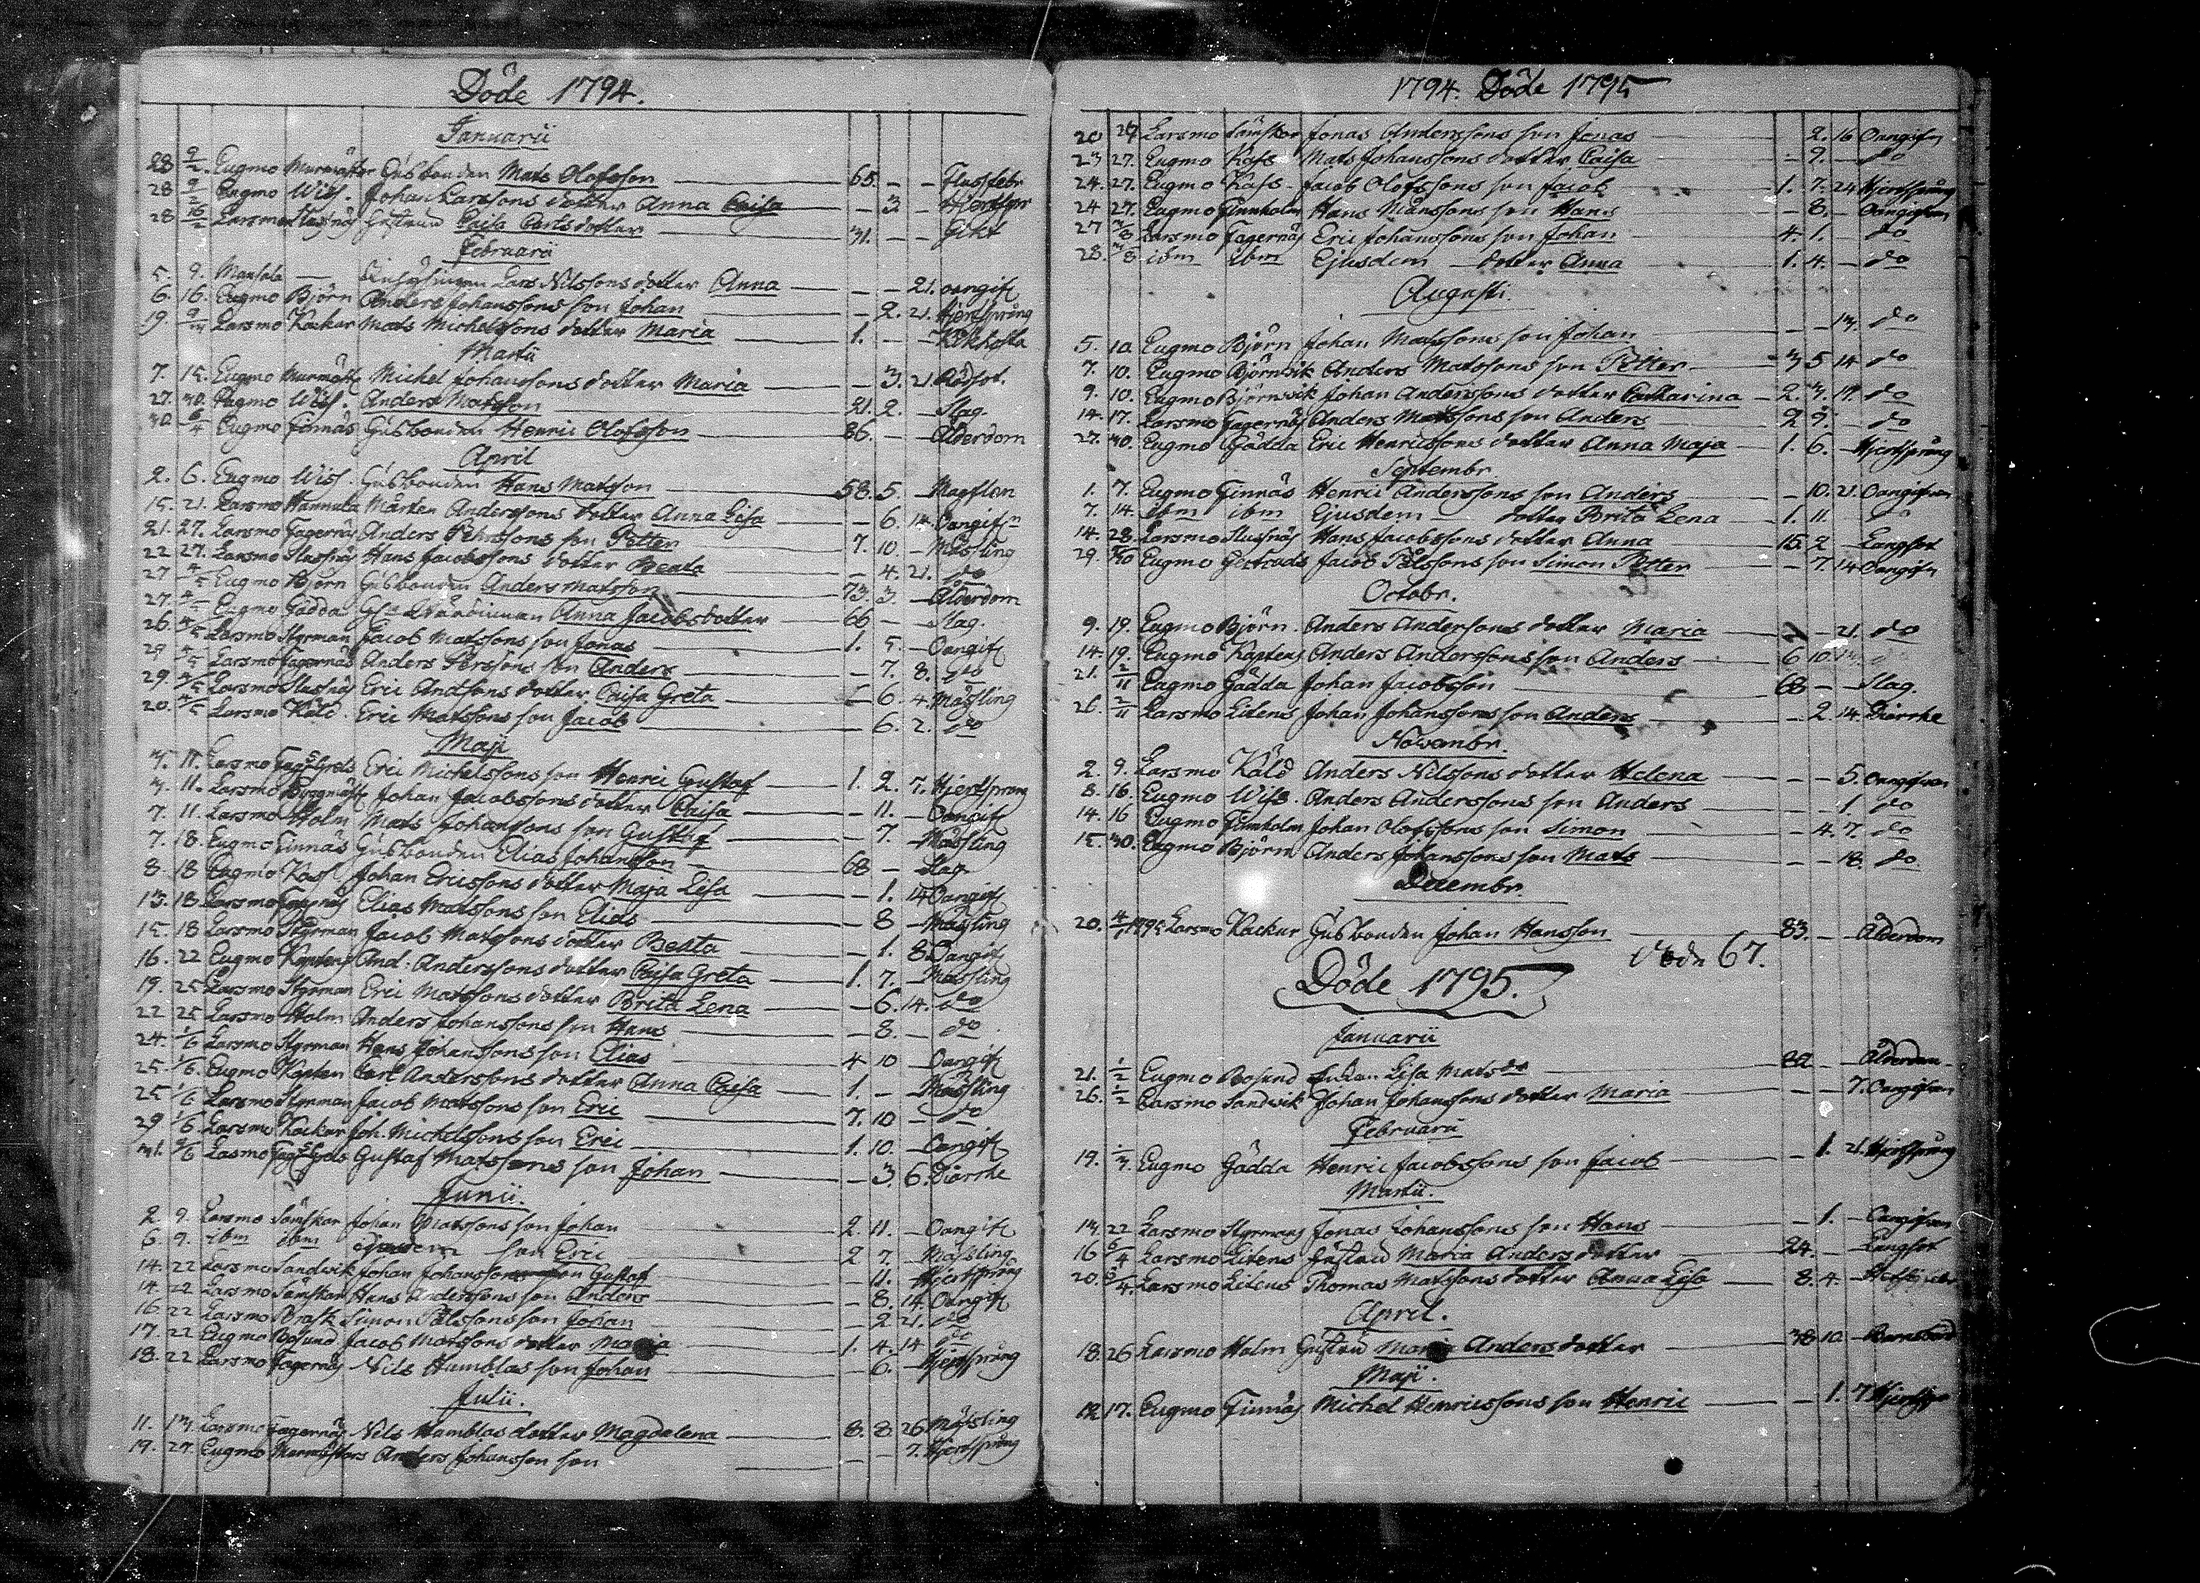 Döde 1794.
Januarii
28 9/2. Eugmo Murmäster Husbonden Mats Olofsson 65. - - Flussfebr
28 9/2 Eugmo Wiss. Johan Larssons dotter Anna Caisa - 3 -
28 16/2 Larsmo Slussnäs Hustrun Caisa Carlsdotter 31. - - Gikt
Februarii
5. 9. Lars Nilssons dotter Anna - - 21. oangifv
6. 16. Eugmo Björn Anders Johanssons son Johan - 2. 21. Hjertsprång
19. 9/3 Larsmo Kackur Mats Michelssons dotter Maria 1. - - Kikhosta
Martii
7. 15. Eugmo Murmäst Michel Johanssons dotter Maria - 3. 21 Rödsot.
27. 30. Eugmo Wiss. Anders Matsson 21. 2. - Slag.
30. 6/4 Eugmo Finnäs Husbonden Henric Olofsson 86. - - Ålderdom
April
2. 6. Eugmo Wiss. Husbonden Hans Matsson 58. 5. - Magplan
15. 21. Larsmo Hannula Mårten Anderssons dotter Anna Lisa - 6. 14. Oangifn
21. 27. Larsmo Fagernäs Anders Pehrssons son Petter 7. 10. - Mässling
22. 27. Larsmo Slussnäs Hans Jacobssons dotter Beata - 4. 21. do
27 4/5 Eugmo Björn Husbonden Anders Matsson 73. 3. - Ålderdom
27. 4/5 Eugmo Gädda Anna Jacobsdotter 66 - - Slag.
26. 4/5 Larsmo Styrman Jacob Matssons son Jonas 1. 5. - Oangif
29 4/5 Larsmo Fagernäs Anders Perssons son Anders - 7. 8. do
29. 4/5 Larsmo Slussnäs Eric Andssons dotter Caisa Greta - 6. 4. Mässling
20. 4/5 Larsmo Käld. Eric Matssons son Jacob - 6. 2. do
Maji
3. 11. Larsmo Eric Michelssons son Henric Gustaf 1. 2. 7. Hjertsprång
3. 11. Larsmo Johan Jacobssons dotter Caisa - 11. - Oangif
7. 11. Larsmo Holm Mats Johanssons son Gustaf - 7. - Mässling
7. 18. Eugmo Finnäs Husbonden Elias Johansson 68 - Slag.
8. 18 Eugmo Kass Johan Ericssons dotter Maja Lisa - 1. 14 Oangif
13. 18 Larsmo Fagernäs Elias Matssons son Elias - 8 - Mässling
15. 18 Larsmo Styrman Jacob Matssons dotter Beata - 1. 8. Oangif
16. 22 Eugmo Kaptens And: Anderssons dotter Caisa Greta 1. 7. - Mässling
19. 25 Larsmo Styrman Eric Matssons dotter Brita Lena - 6. 14. do
22 25 Larsmo Holm Anders Johanssons son Hans - 8. - do
24. 1/6 Larsmo Styrman Hans Johanssons son Elias 4 10 - Oangif
25. 1/6. Eugmo Kapten Carl Anderssons dotter Anna Caisa 1. - - Mässling
25 1/6 Larsmo Styrman Jacob Matssons son Eric 7. 10 - do
29 1/6 Larsmo Kackur Joh. Michelssons son Eric 1. 10. - Oangif
31. 9/6 Larsmo Gustaf Matssons son Johan - 3 6. Diarrhe
Junii.
2. 9. Larsmo Sämskar Johan Matssons son Johan 2. 11. - Oangif
6. 9. ibm ibm ejusdem son Eric 2 7. - Mässling
14. 22 Larsmo Sandwik Johan Johanssons son Gustaf - 11. - Hjertsprång
14. 22 Larsmo Sämskar Hans Anderssons son Anders - 8. 14. Oangif
16. 22 Larsmo Brask Simon Pålssons son Johan - 2 21. do
17. 22 Eugmo Bosund Jacob Matssons dotter Maria 1. 4. 14 do
18. 22 Larsmo Fagernäs Nils Humblas son Johan - 6. - Hjertsprång
Julii.
11. 13. Larsmo Fagernäs Nils Humblas dotter Magdalena 8. 8. 26 Mässling
19. 27. Eugmo Murmästars Anders Johansson son - - 7. Hjertsprång
1794. Döde 1795
20 27 Larsmo Sämskar Jonas Anderssons son Jonas - 2. 16 Oangifn
23 27. Eugmo Kass Mats Johanssons dotter Caisa - 9. - do
24. 27. Eugmo Kass Jacob Olofssons son Jacob 1. 7. 24 Hjertsprång
24 27. Eugmo Finnholm Hans Månssons son Hans - 8. - Oangifven
27 3/8 Larsmo Fagernäs Eric Johanssons son Johan 4. 1. - do
28. 3/8. ibm ibm Ejusdem dotter Anna 1. 4. - do
Augusti.
5. 10. Eugmo Björn Johan Matssons son Johan - - 13. do
7. 10. Eugmo Björnvik Anders Matssons son Petter 3 5 14 do
9. 10. Eugmo Björnvik Johan Anderssons dotter Catharina 2. 3. 17. do
14. 17. Larsmo Fagernäs Anders Matssons son Anders 2 9. - do
27. 30. Eugmo Gädda Eric Henricssons dotter Anna Maja 1. 6. - Hjertsprång
Septembr
1. 7. Eugmo Finnäs Henric Anderssons son Anders - 10. 21. Oangifven
7. 14 ibm ibm Ejusdem dotter Brita Lena 1. 11. - do
14. 28 Larsmo Slusnäs Hans Jacobssons dotter Anna 15. 2 - Langsot
29. 5/10 Eugmo Gertruds Jacob Pålssons son Simon Petter - 7. 14 Oangifn
Octobr.
9. 19. Eugmo Björn. Anders Anderssons dotter Maria - - 21. do
14. 19. Eugmo Kaptens Anders Anderssons son Anders 6 10.
21. 2/11 Eugmo Gädda Johan Jacobsson 68 - - Slag.
26. 2/11 Larsmo Litens Johan Johanssons son Anders - 2. 14. Diarrhe
Novembr.
2. 9. Larsmo Käld Anders Nilssons dotter Helena - - 5. Oangifven
8. 16. Eugmo Wiss. Anders Anderssons son Anders - - 1. do
14. 16 Eugmo Finnholm Johan Olofssons son Simon - 4. 7. do
15. 30. Eugmo Björn Anders Johanssons son Mats - - 18. do
Decembr.
20. 4/1 1795 Larsmo Kackur Husbonden Johan Hansson 83. - - Ålderdom
67.
Döde 1795.
Januarii
21. 1/2 Eugmo Bosund Enkan Lisa Mats dr - Ålderdom
26. 1/2 Larsmo Sandwik Johan Johanssons dotter Maria - - 7. Oangifven
Februarii
19. 1/3. Eugmo Gädda Henric Jacobssons son Jacob - 1. 21. Hjertsprång
Martii.
13. 22 Larsmo Styrmans Jonas Johanssons son Hans - 1. - Oangifven
16 5/4 Larsmo Litens Hustrun Maria Andersdotter 24. - - Langsot
20. 5/4. Larsmo Litens Thomas Matssons dotter Anna Lisa 8. 4. -
April.
18 26 Larsmo Holm Hustrun Maria Andersdotter 38 10. - Barnsbörd
Maji.
12 17. Eugmo Finnäs Michel Henricssons son Henric - 1. 7 Hjertspr